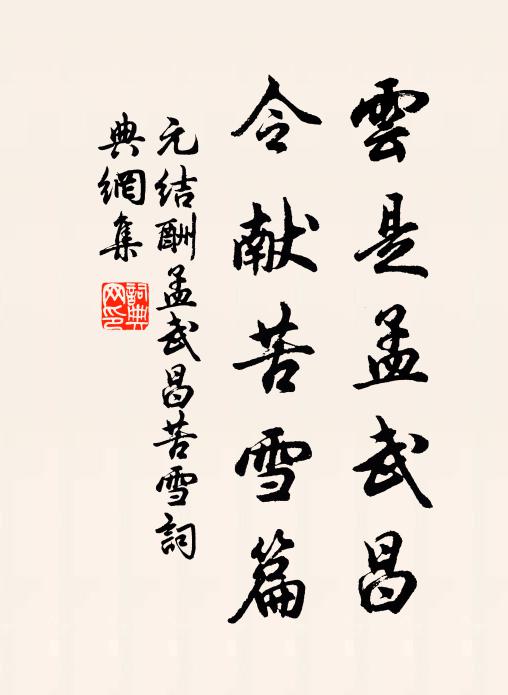 雲是孟武昌
令献苦雪篇
元结酬孟武昌苦雪詞
典網集
詞典网印